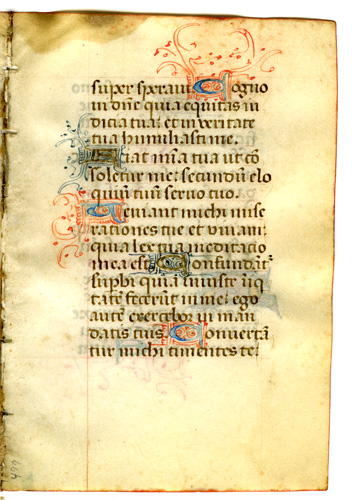 super speraui Cogno
ui dn̄e quia equitas iu
dicia tua: et in ueritate
tua humiliasti me.
Fiat mīa tua ut cō
soletur me: secundūm elo
quiūm tuūm seruo tuo.
Ueniant michi mise
rationes tue et uiuam:
quia lex tua meditacio
mea est. Confundant̄
supbi quia iniuste iīq
tatē fecerunt in me: ego
autē exercebor in man
datis tuis. Conuertan
tur michi timentes te:
499